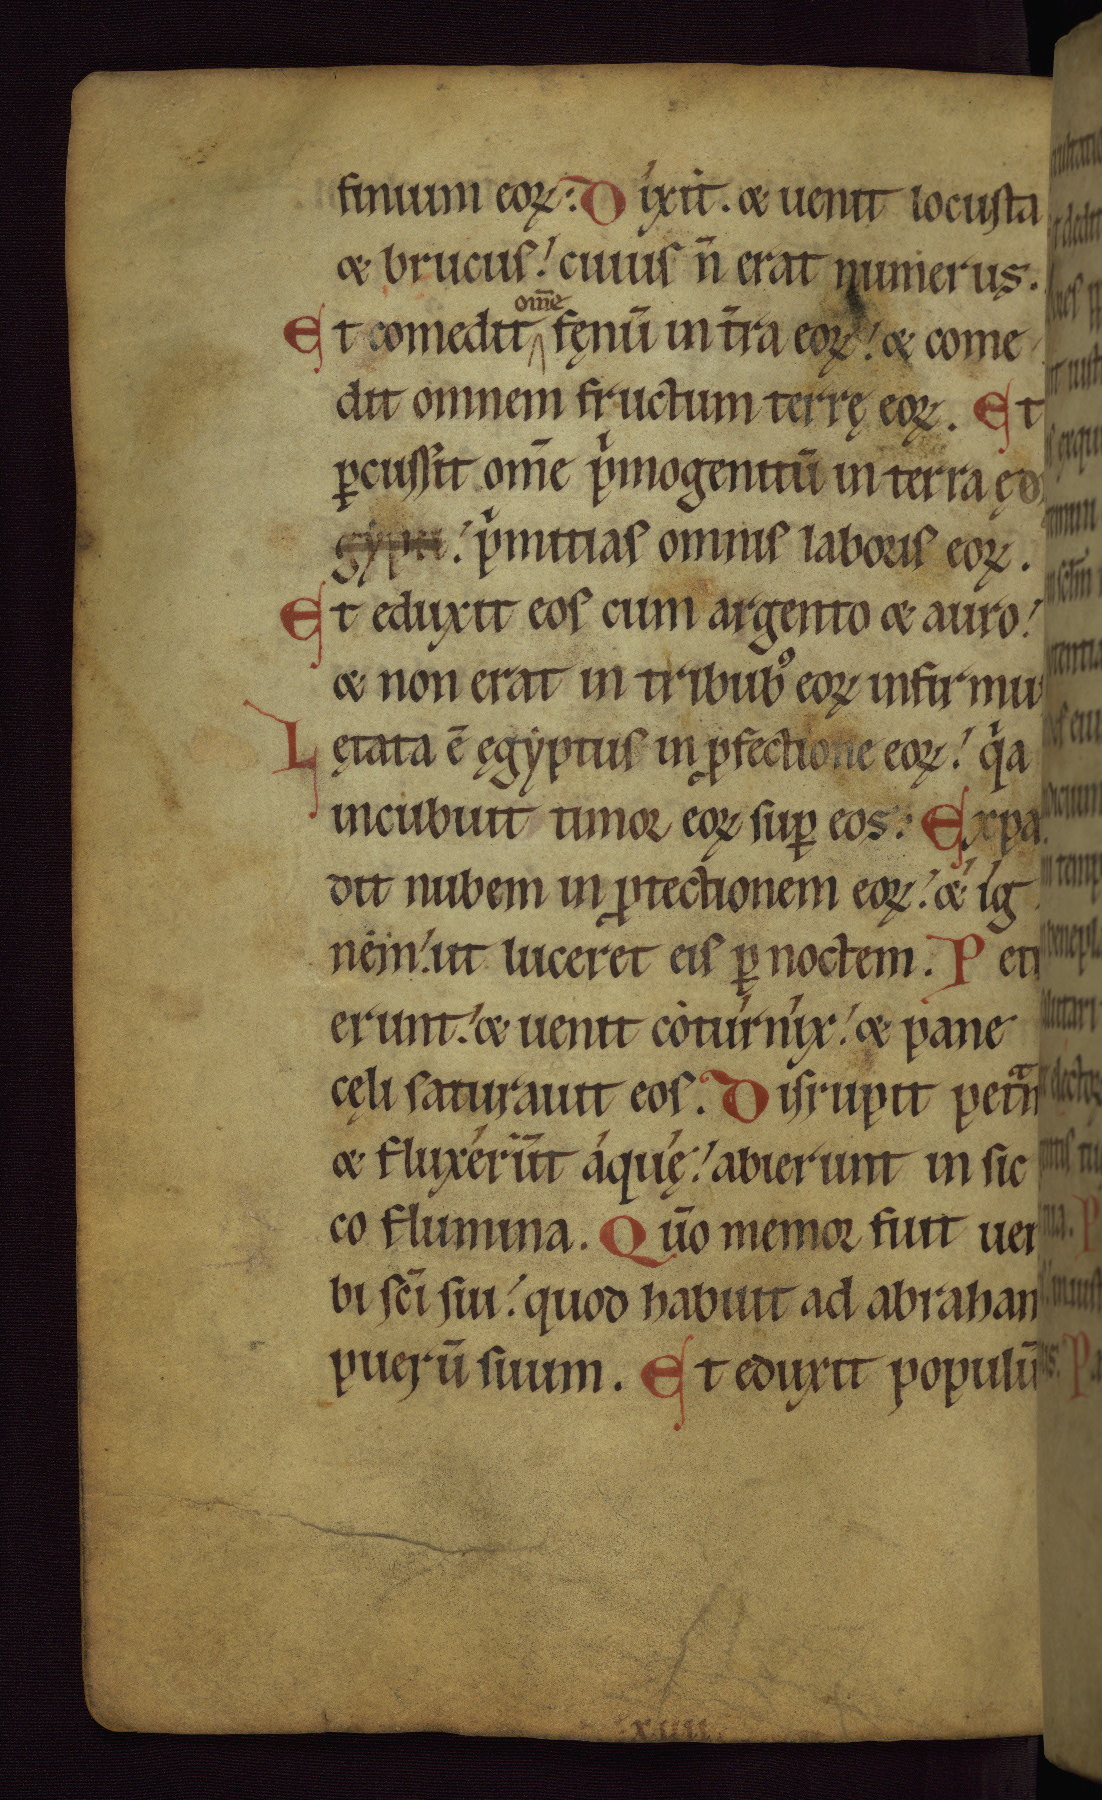 finium eoꝝ: Dixit. & uenit locusta
& brucus! cuius n̄ erat numerus.
Et comedit om̄e fęnū in t̄ra eoꝝ! & come
dit omnem fructum terrę eoꝝ. Et
ꝑcussit om̄e pͥmogenitū in terra ę
gypti! pͥmitias omnis laboris eoꝝ.
Et eduxit eos cum argento & auro!
& non erat in tribubꝰ eoꝝ infirmu
Lętata ē ęgẏptus in ꝓfectione eoꝝ! qͥa
incubuit timor eoꝝ suꝑ eos: Expa
dit nubem in ꝓtectionem eoꝝ! & ig
nem! ut luceret eis ꝑ noctem. Peti
erunt! & uenit coturnix! & pane
cęli saturauit eos. Disrupit petrā
& fluxer̄ut aquę! abierunt in sic
co flumina. Qūo memor fuit uer
bi sc̄i sui! quod habuit ad abraham
puerū suum. Et eduxit populū
xiiii.